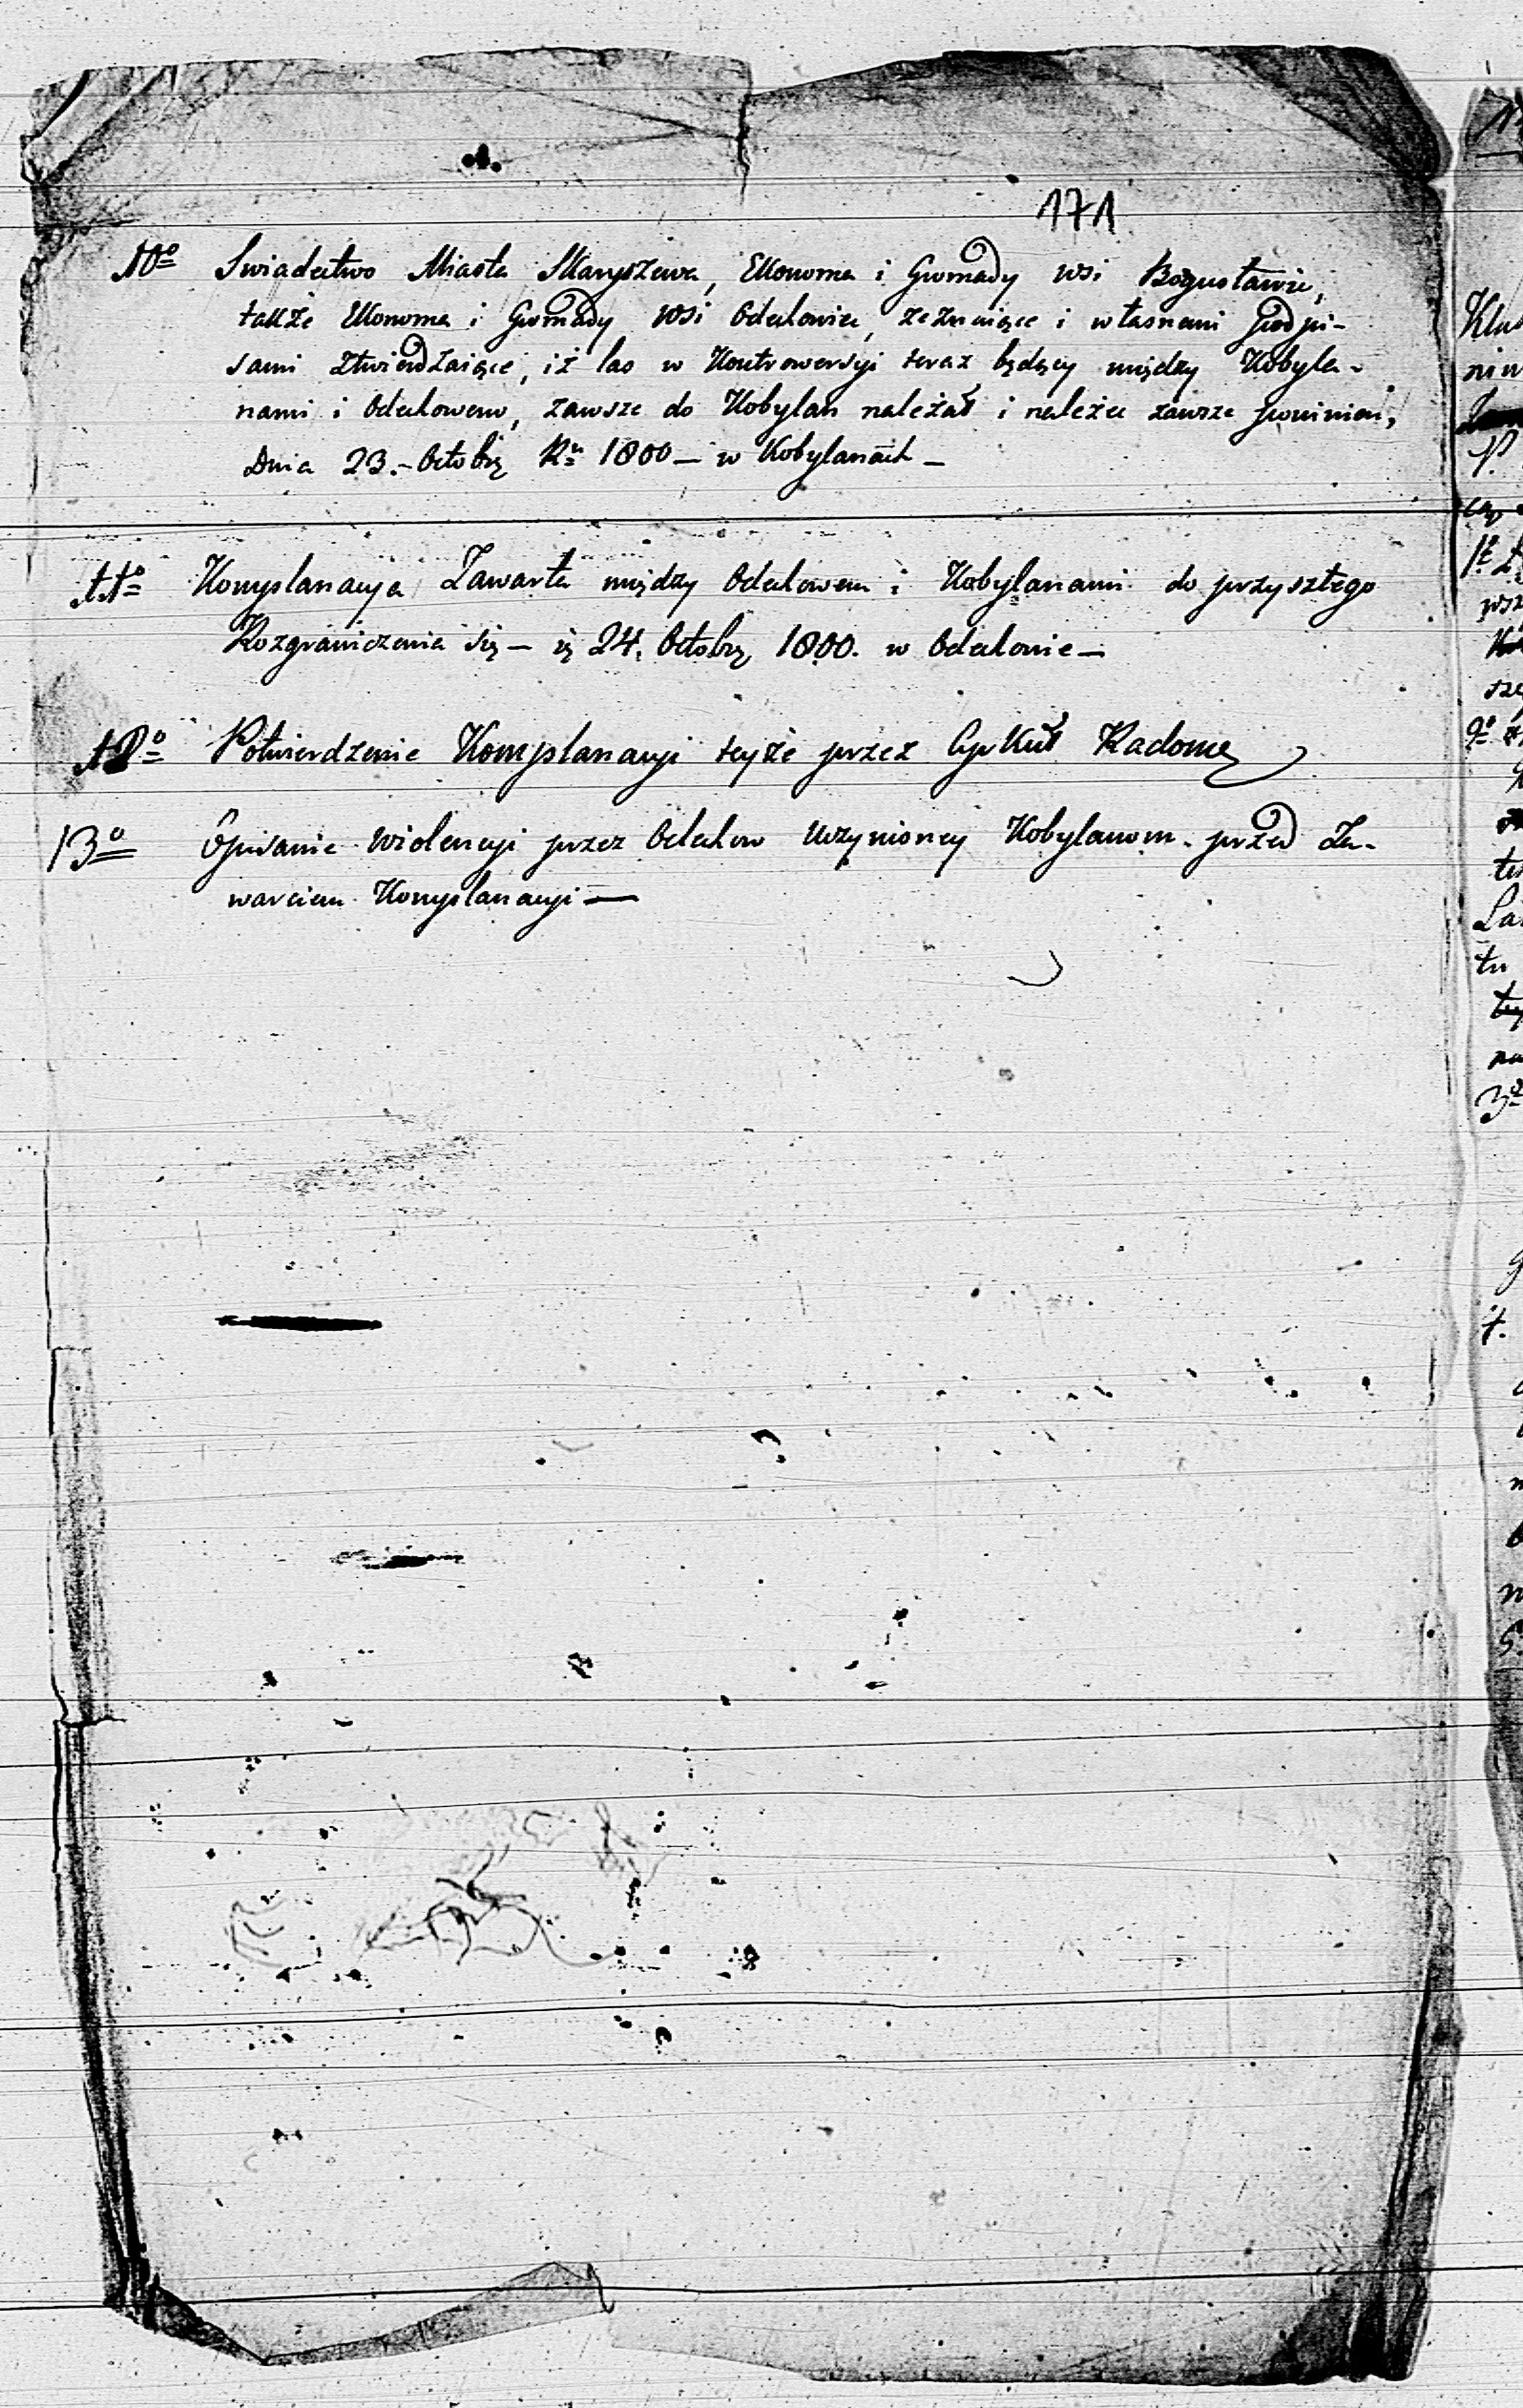 171
10º Swiadectwo Miasta Skaryszewa, Ekonoma i Gromady wsi Bogusławic,
także Ekonoma i Gromady wsi Odechowice, zeznaiące i własnemi Podpi-
sami ztwierdzaiące, iż las w Kontrowersyi teraz będący między Kobyla-
nami i Odechowem, zawsze do Kobylan należał i należeć zawsze powinien,
Dnia 23.- Octobrą Ru 1800 - w Kobylanach -
11º Komplanacya Zawarta między Odechowem i Kobylanami do przyszłego
Rozgraniczenia się - 24. Octobrą 1800. w Odechowie -
12º Potwierdzenie Komplanacyi teyże przez Cyrkuł Radoms
13º Opisanie violencyi przez Odechow uczynioney Kobylanom. przed Za-
warciem Komplanacyi -